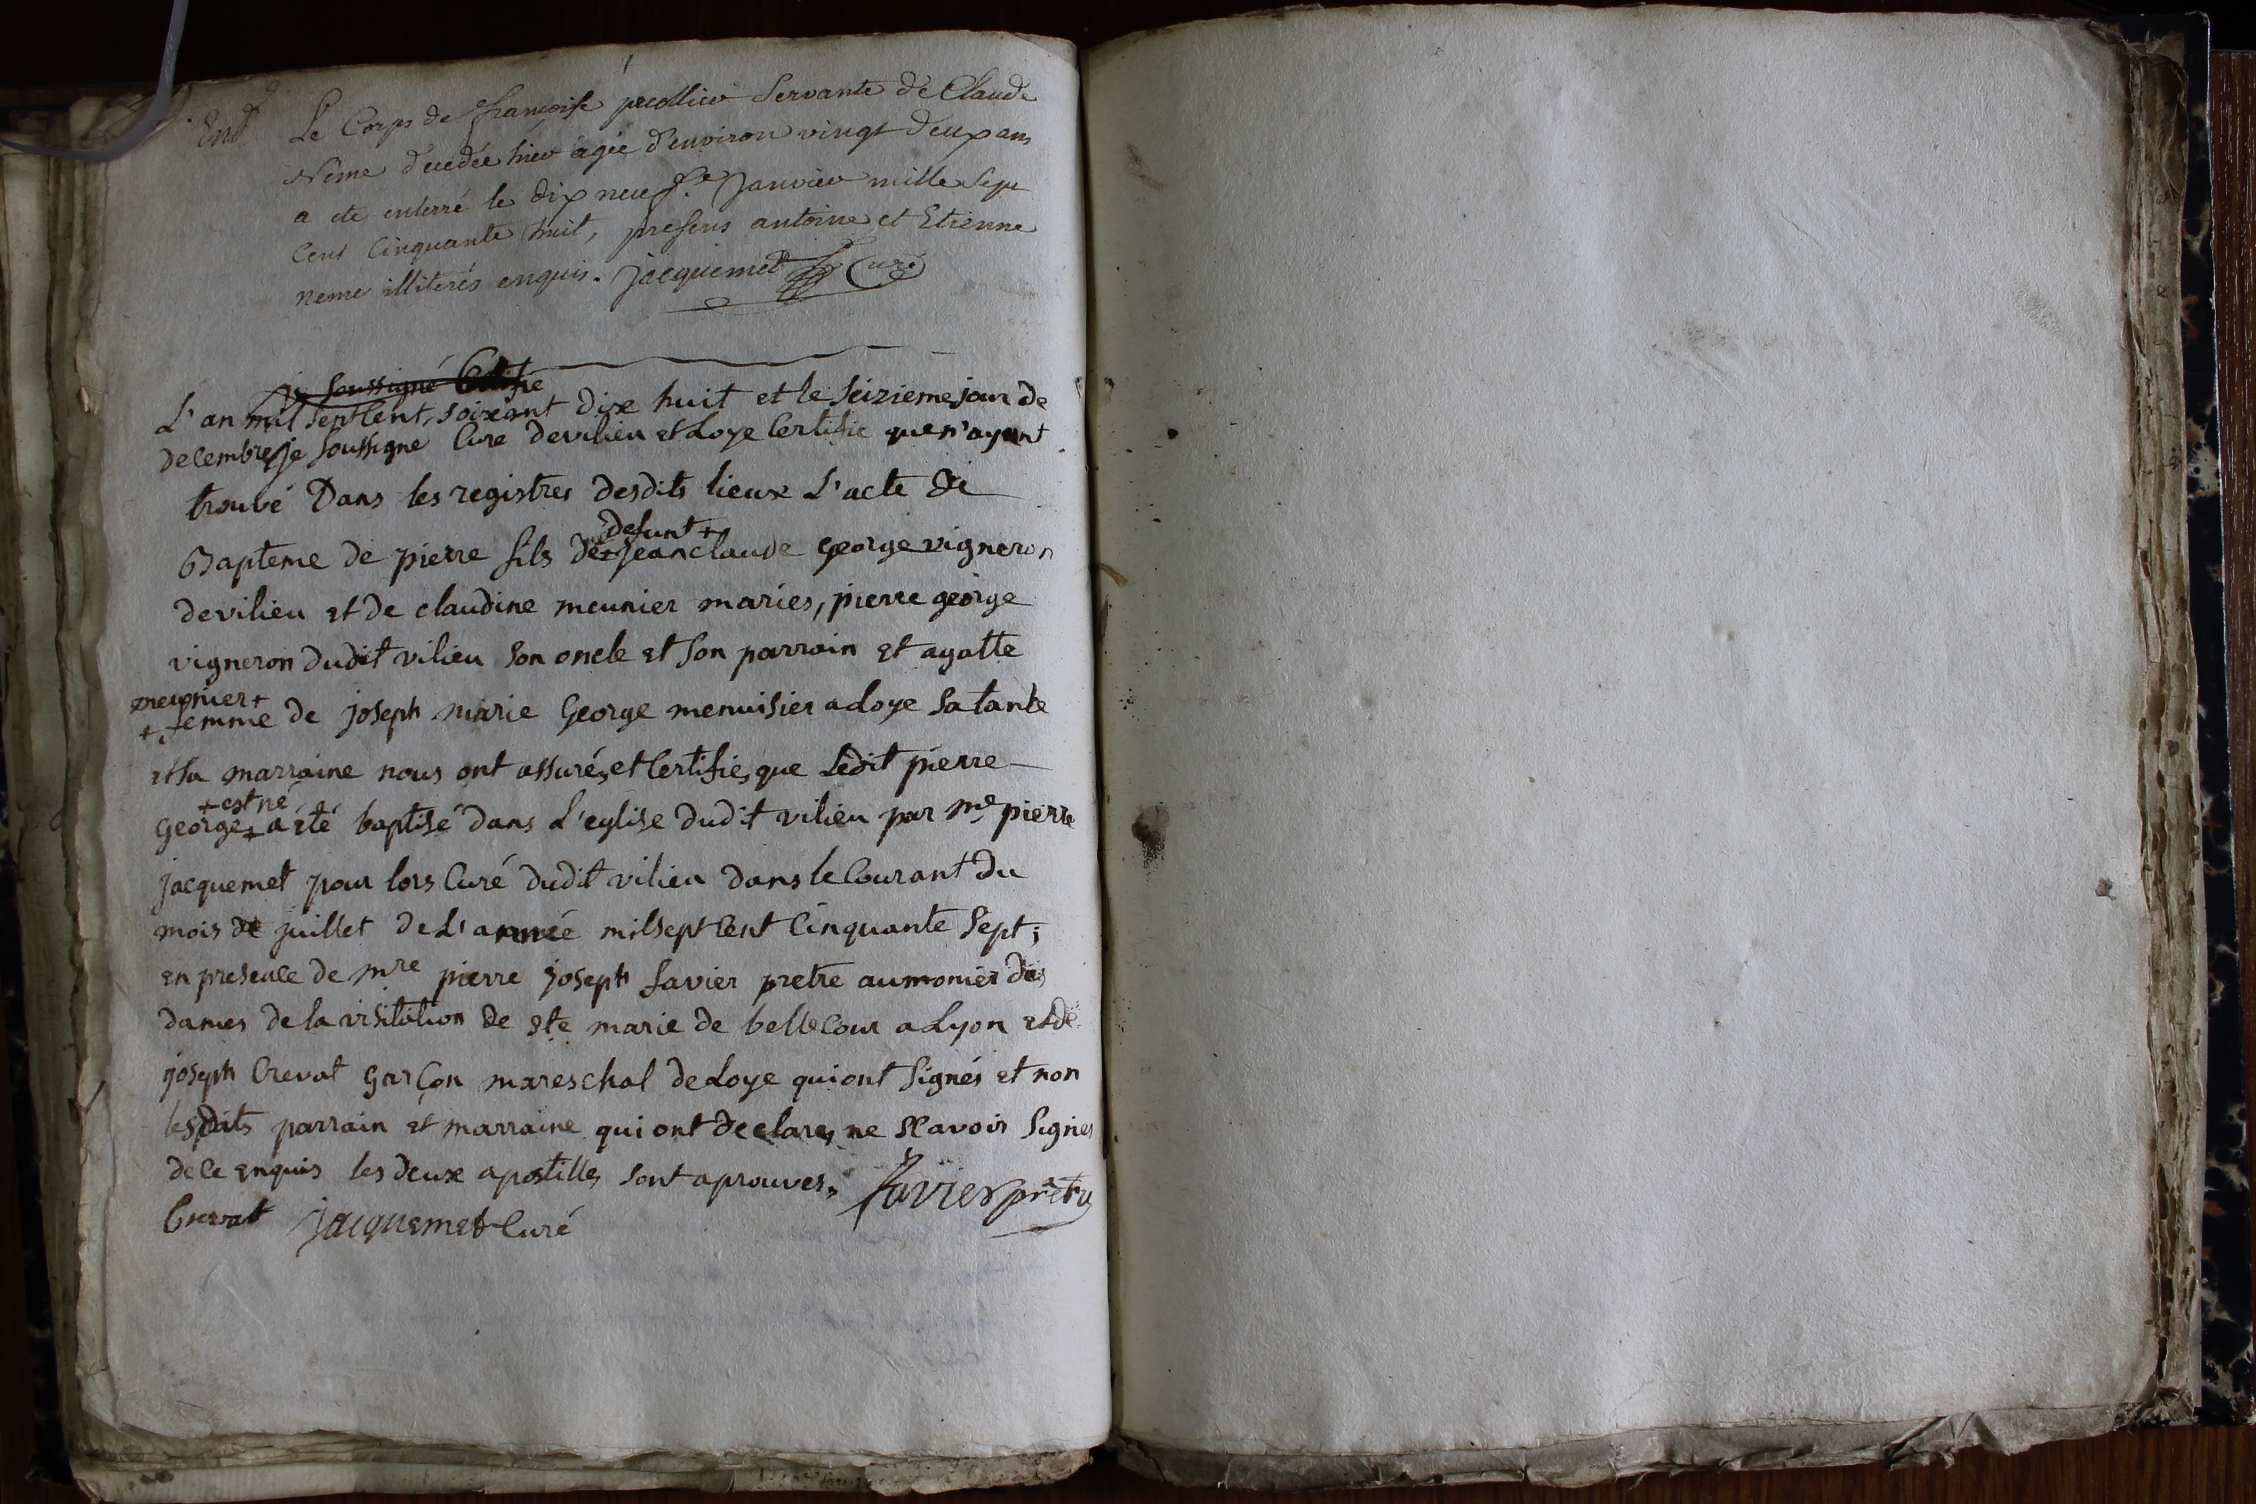 Le Corps de françoise servante de Claude
Nême decedée hier agée d'environ vingt deux ans
a ete enterré le dix neufe. Janvier mille sept
cens cinquante huit, presens antoine et Etienne
neme illiterés enquis. Jacquemet Curé
je soussigné Certifie
L'an mil sept Cent, soixant dix huit et le seizieme jour de
decembre je soussigne Cure de vilieu et Loye Certifie que n'ayant
trouvé Dans les registres desdits lieux L'acte de
defunt +
Bapteme de pierre fils de + jean claude george vigneron
de vilieu et de claudine meunier maries, pierre george
vigneron dudit vilieu son oncle et son parrain et agatte
meunier +
+ femme de joseph marie George menuisier a Loye sa tante
et sa marraine nous ont assurés et Certifies que Ledit pierre
+ est né
George + a été baptisé dans L'eglise dudit vilieu par me pierre
jacquemet pour lors Curé dudit vilieu dans le Courant du
mois de juillet de L'année mil sept Cent Cinquante sept ;
en presence de mre pierre joseph favier pretre aumonier des
dames de la visitation de ste marie de belle Cour a Lyon et de
joseph Crevat garçon mareschal de Loye qui ont signés et non
lesdits parrain et marraine qui ont declares ne sCavoir signer
de Ce enquis les deux apostilles sont aprouves.
favier prêtre
Crevat jacquemet Curé